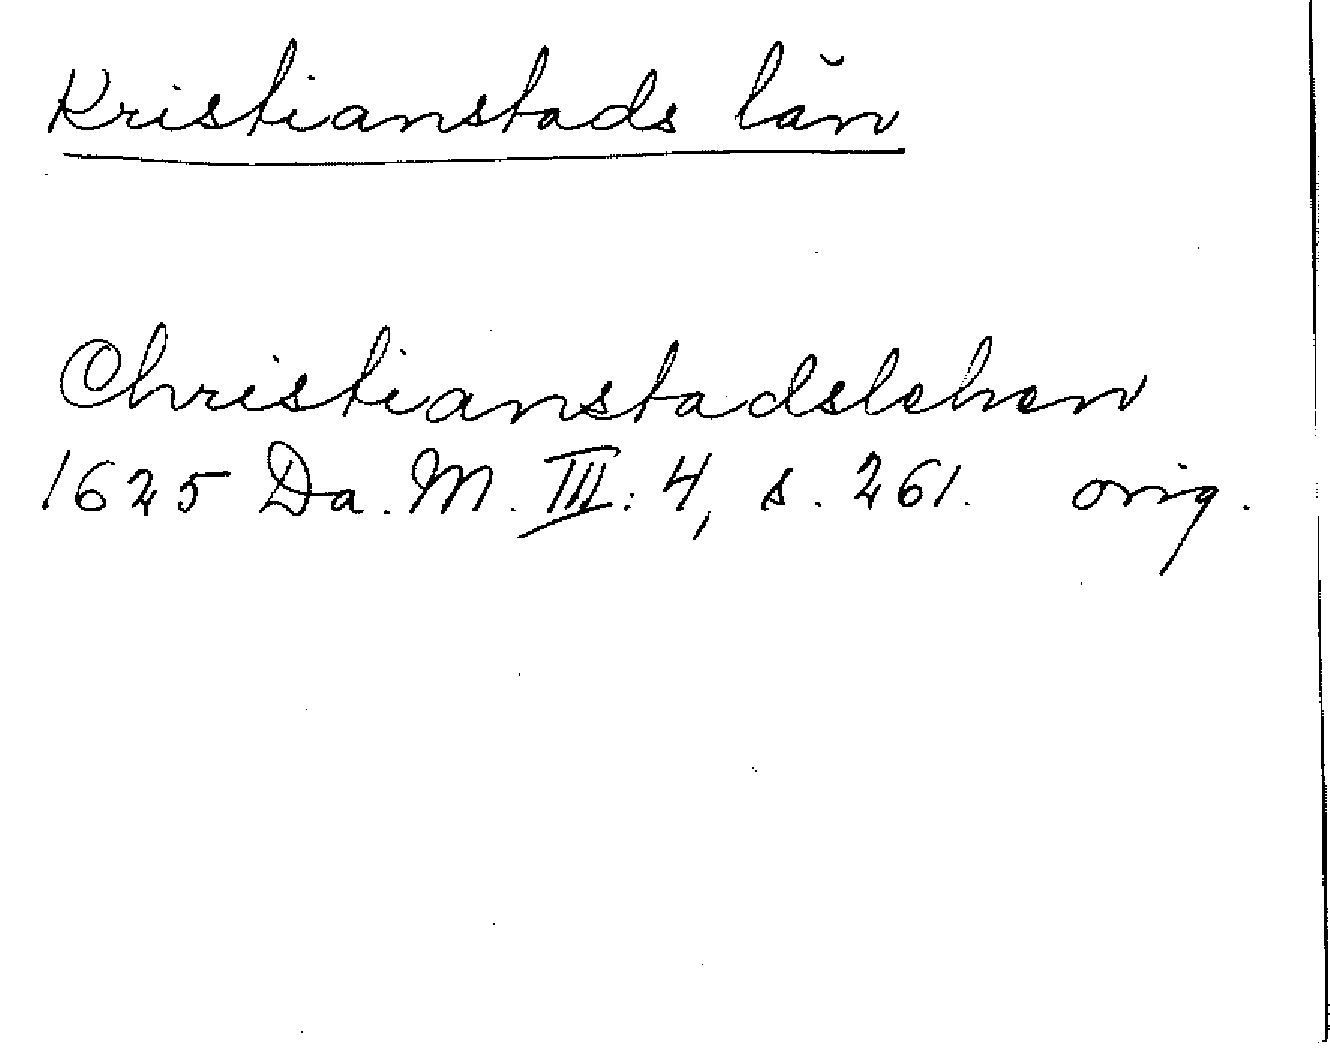 Kristianstads län
Christianstadslehen
1625 Da. M. III: 4, s. 261. orig.